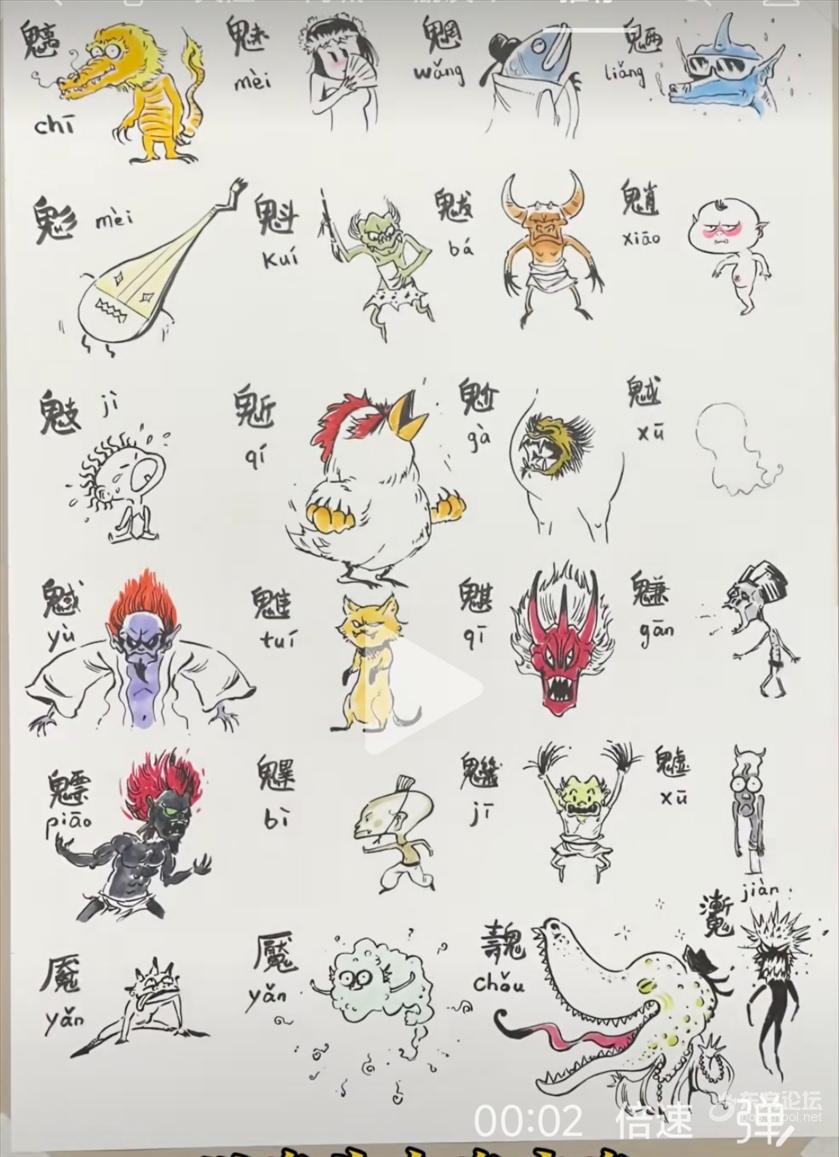 魑 chī
魅 mèi
魍 wǎng
魉 liǎng
鬽 mèi
魁 kuí
魃 bá
魈 xiāo
鬾 jì
鬿 qí
魀 gà
魆 xū
魊 yù
魋 tuí
魌 qī
魐 gān
魒 piāo
魓 bì
魕 jī
魖 xū
魇 yǎn
魘 yǎn
魗 chǒu
魙 jiàn
00:02 倍速 弹